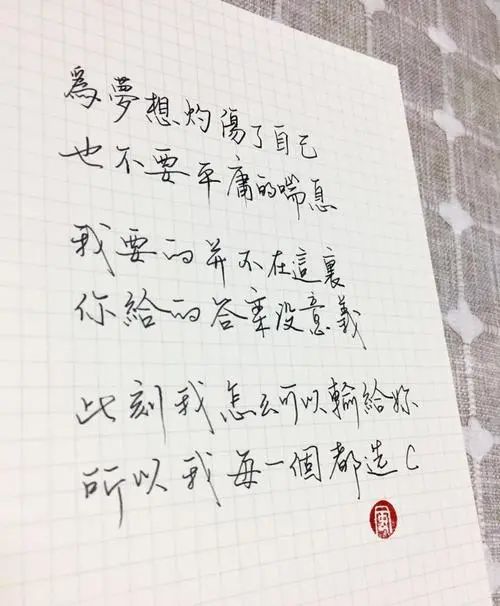 爲夢想灼傷了自己
也不要平庸的喘息
我要的并不在這裏
你給的答案没意義
此刻我怎么可以輸給妳
所以我每一個都造C
風